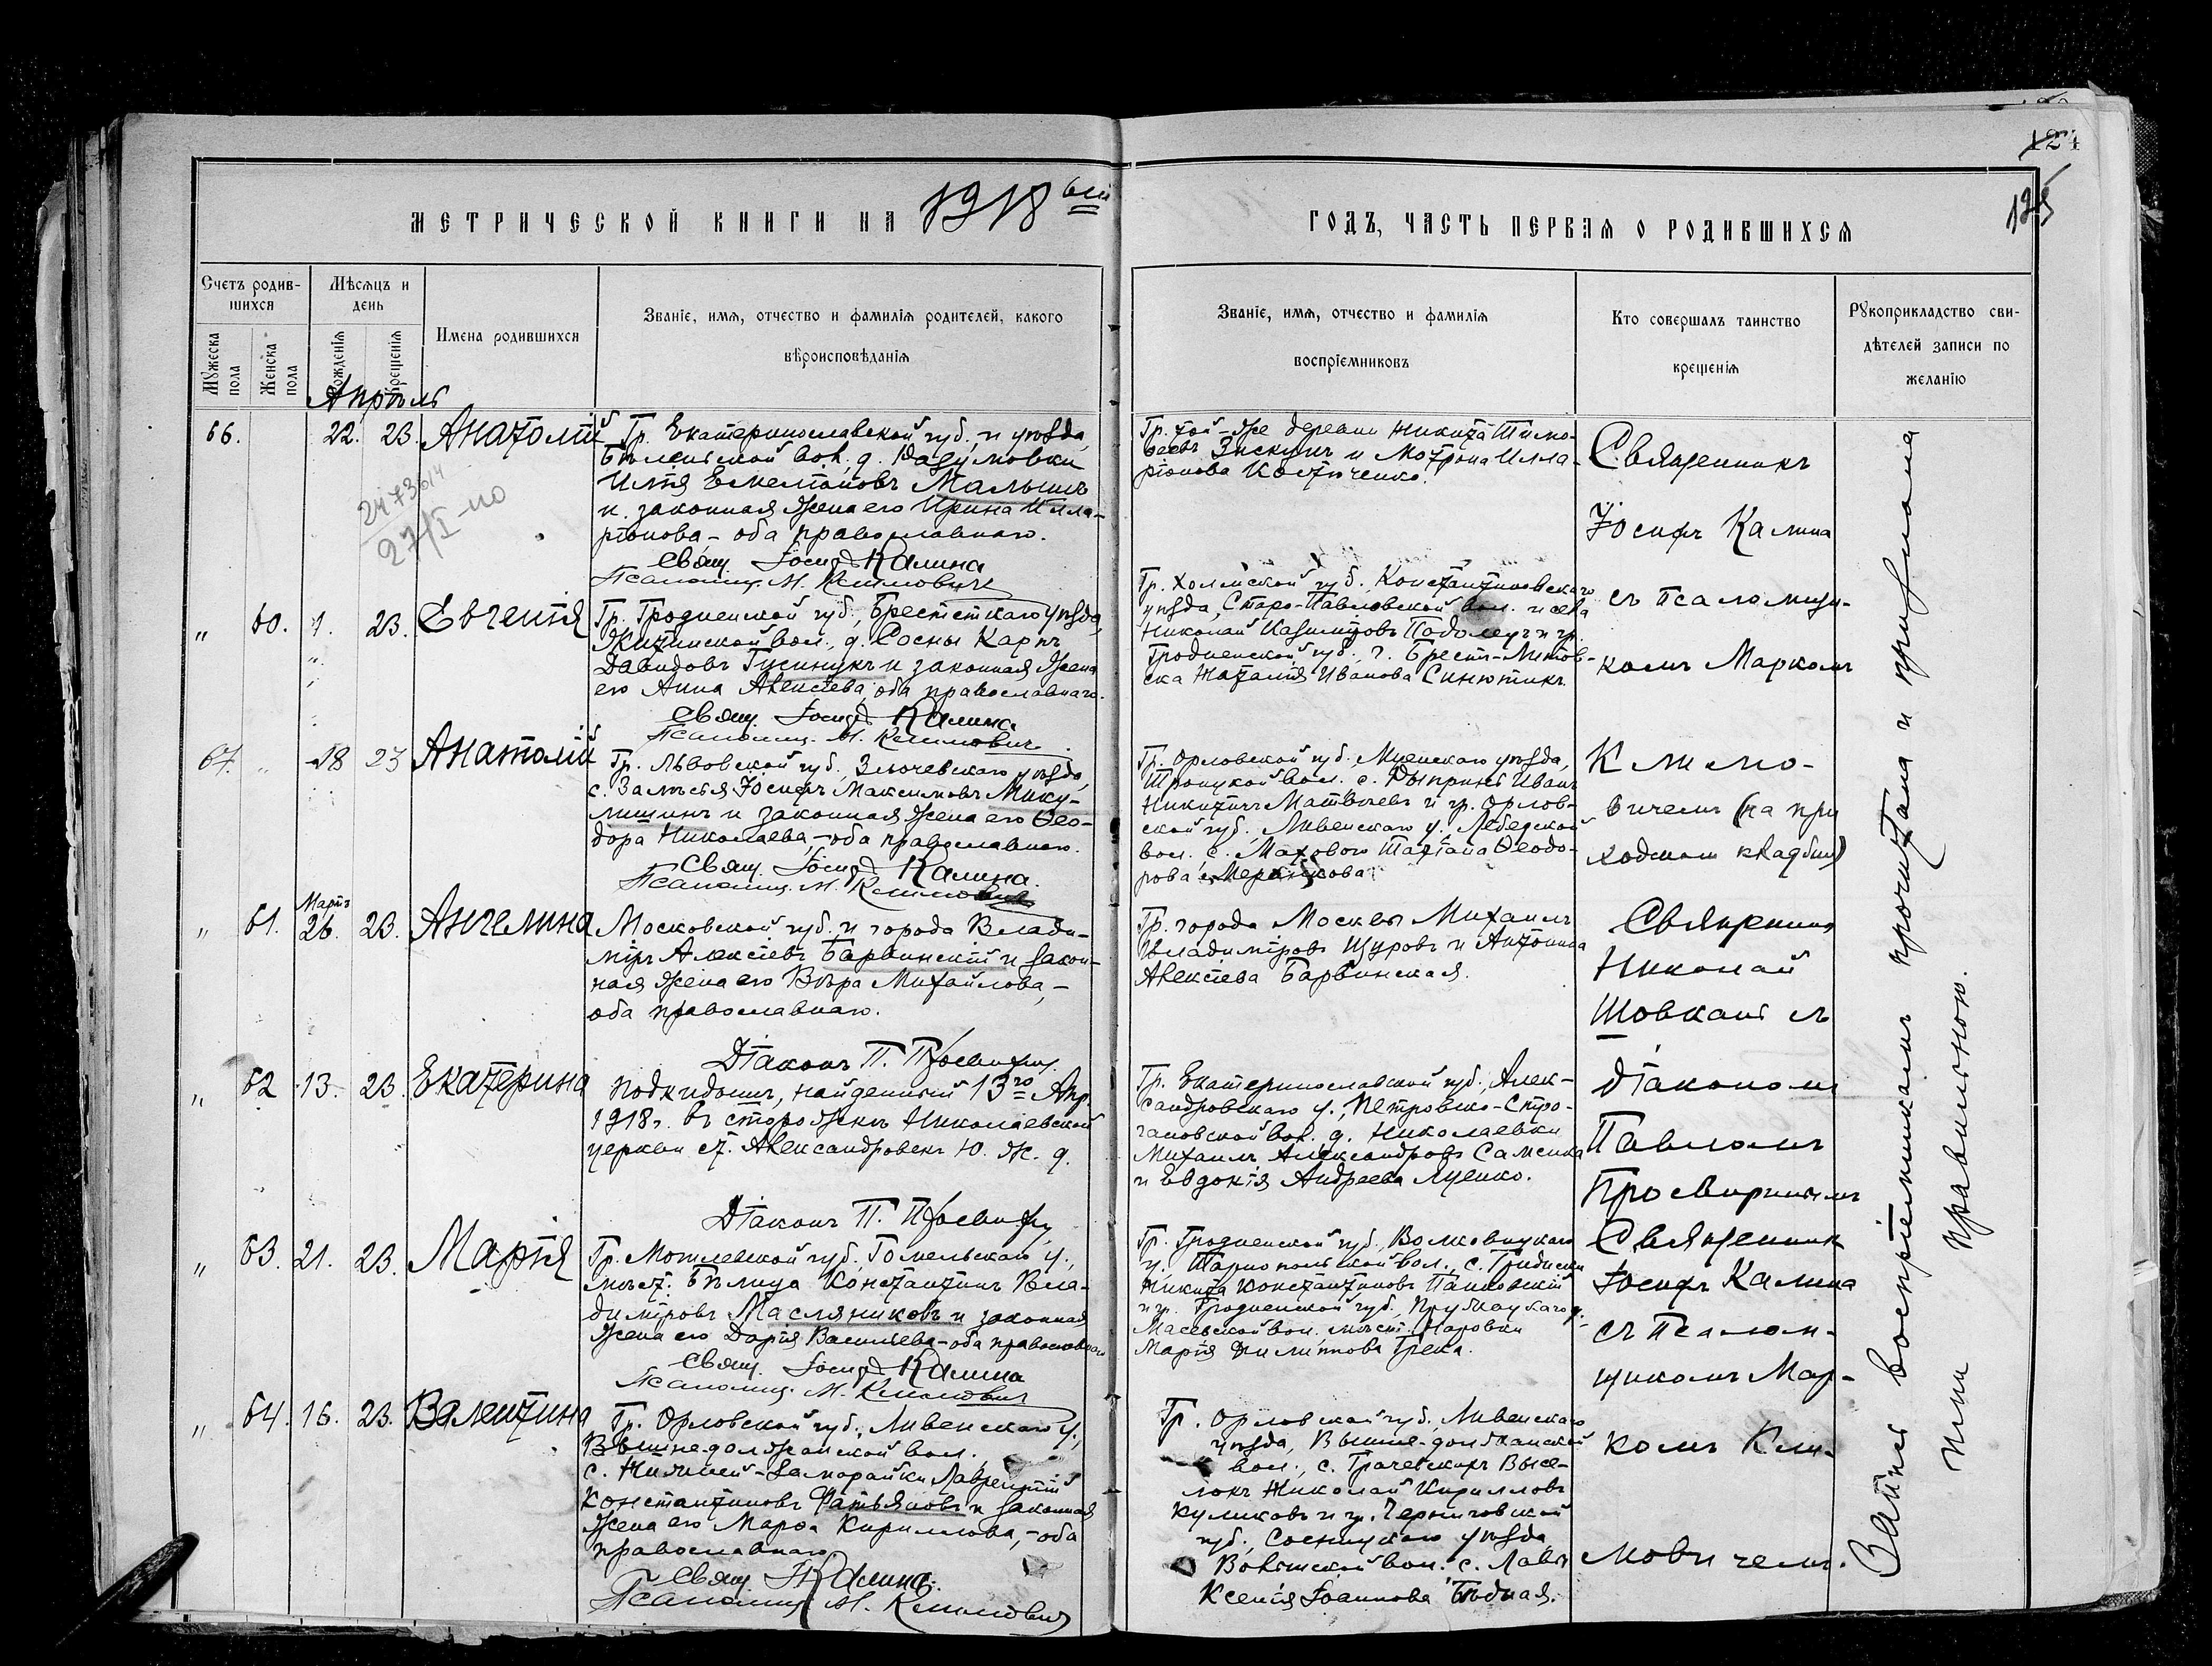 124
125
МЕТРИЧЕСКОЙ КНИГИ НА 1918 ый
ГОДЪ, ЧАСТЬ ПЕРВАЯ О РОДИВШИХСЯ
Счетъ родив-
шихся
Мужеска пола
Женска пола
Мѣсяцъ и
день
Рожденія
Крещенія
Имена родившихся
Званіе, имя, отчество и фамилія родителей, какого
вѣроисповѣданія
Званіе, имя, отчество и фамилія
воспріемниковъ
Кто совершалъ таинство
крещенія
Рукоприкладство сви-
дѣтелей записи по
желанію
Апрѣль
66. 22. 23. Анатолій
Гр. Екатеринославской губ. и уѣзда,
вол., д. Разумовки
Илія Емеліановъ Малышъ
и законная жена его Ирина Илла-
ріонова – оба православнаго.
Свящ. Іосифъ Калина
Псаломщ. М. Климовичъ
Гр. той-же деревни Никита Тимо-
феевъ и Мотрона Илла-
ріонова Костюченко.
Священникъ
Іосифъ Калина
27/I
„ 60. 1. 23. Евгенія
Гр. Гродненской губ., Брестскаго уѣзда,
вол., д. Сосны Карпъ
Давидовъ Гусинукъ и законная жена
его Анна Алексіева, оба православнаго.
Свящ. Іосифъ Калина
Псаломщ. М. Климовичъ
Гр. Холмской губ. Константиновскаго
уѣзда, Старо-Павловской вол. и села
Николай Казиміровъ и гр.
Гродненской губ., г. Брестъ-Литов-
ска Наталія Иванова Синютикъ.
съ псаломщи-
комъ Маркомъ
67. „ 18 23 Анатолій
Гр. Львовской губ., Злочевскаго уѣзда,
с. Залѣсья Іосифъ Максимовъ Мику-
лишинъ и законная жена его Фео-
дора Николаева, – оба православнаго.
Свящ. Іосифъ Калина.
Псаломщ. М. Климовичъ
Гр. Орловской губ. Мценскаго уѣзда,
вол. с. Иванъ
Никитичъ Матвѣевъ и гр. Орлов-
ской губ., Ливенскаго у. Лебедской
вол. с. Махового Татіана Феодо-
рова
Климо-
вичемъ (на при
ходском кладбищ)
„ 61. Мартъ 26. 23. Ангелина
Московской губ. и города Влади-
міръ Алексіевъ Барвинскій и закон-
ная жена его Вѣра Михайлова, –
оба православнаго.
Діаконъ П.
Гр. города Москвы Михаилъ
Владиміровъ Щуровъ и Антонина
Алексіева Барвинская.
Священник
Николай
съ
„ 62 13. 23. Екатерина
Подкидышъ, найденный 13го Апр.
1918г. въ сторожкѣ Николаевской
церкви ст. Александровскъ Ю. ж. д.
Діаконъ П.
Гр. Екатеринославской губ., Алек-
сандровскаго у., Петровско-Стро-
гановской вол. д. Николаевки
Михаилъ Александровъ
и Евдокія Андреева Луценко.
діакономъ
Павломъ
„ 63. 21. 23. Марія
Гр. Могилевской губ., Гомельскаго у.,
мѣст. Бѣлица Константинъ Вла-
диміровъ Масляниковъ и законная
жена его Дарія Василіева – оба православнаго
Свящ. Іосифъ Калина
Псаломщ. М. Климовичъ
Гр. Гродненской губ., Волковыцкаго
у. вол., с.
Никита Константиновъ
и гр. Гродненской губ., Пружанскаго у.
Масевской вол. мѣст. Наровки
Марія Филиппова Грека.
Священник
Іосифъ Калина
съ Псалом-
щикомъ Мар-
„ 64. 16. 23. Валентина
Гр. Орловской губ., Ливенскаго у.,
Вышне-должанской вол.
с. Лаврентій
Константиновъ Фатьяновъ и законная
жена его Марфа Кириллова, – оба
православнаго
Свящ. І. Калина.
Псаломщ. М. Климовичъ
Гр. Орловской губ. Ливенскаго
уѣзда, Вышне-должанской
вол., с. Грачевскихъ Высе-
локъ Николай Кирилловъ
Куликовъ и гр. Черниговской
губ., Сосницкаго уѣзда
вол. с.
Ксенія Іоаннова Бѣдная.
комъ Кли-
мовичемъ.
воспріемникамъ прочитана и признана
ими правильною.